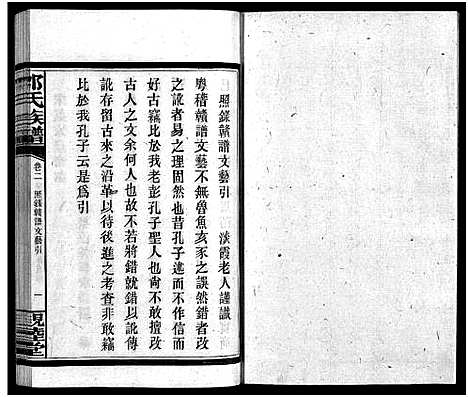 照錄贛譜文藝引
淡霞老人謹識
粵稽贛譜文藝不無魯魚亥豕之誤然錯者改
之訛者易之理固然也昔孔子述而不作信而
好古竊比於我老彭孔子聖人也尚不敢擅改
古人之文余何人也故不若將錯就錯以訛傳
訛存留古來之沿革以待後進之考查非敢竊
比於我孔子云是為引
氏族譜
卷二
照錄贛譜文藝引
一
親睦堂